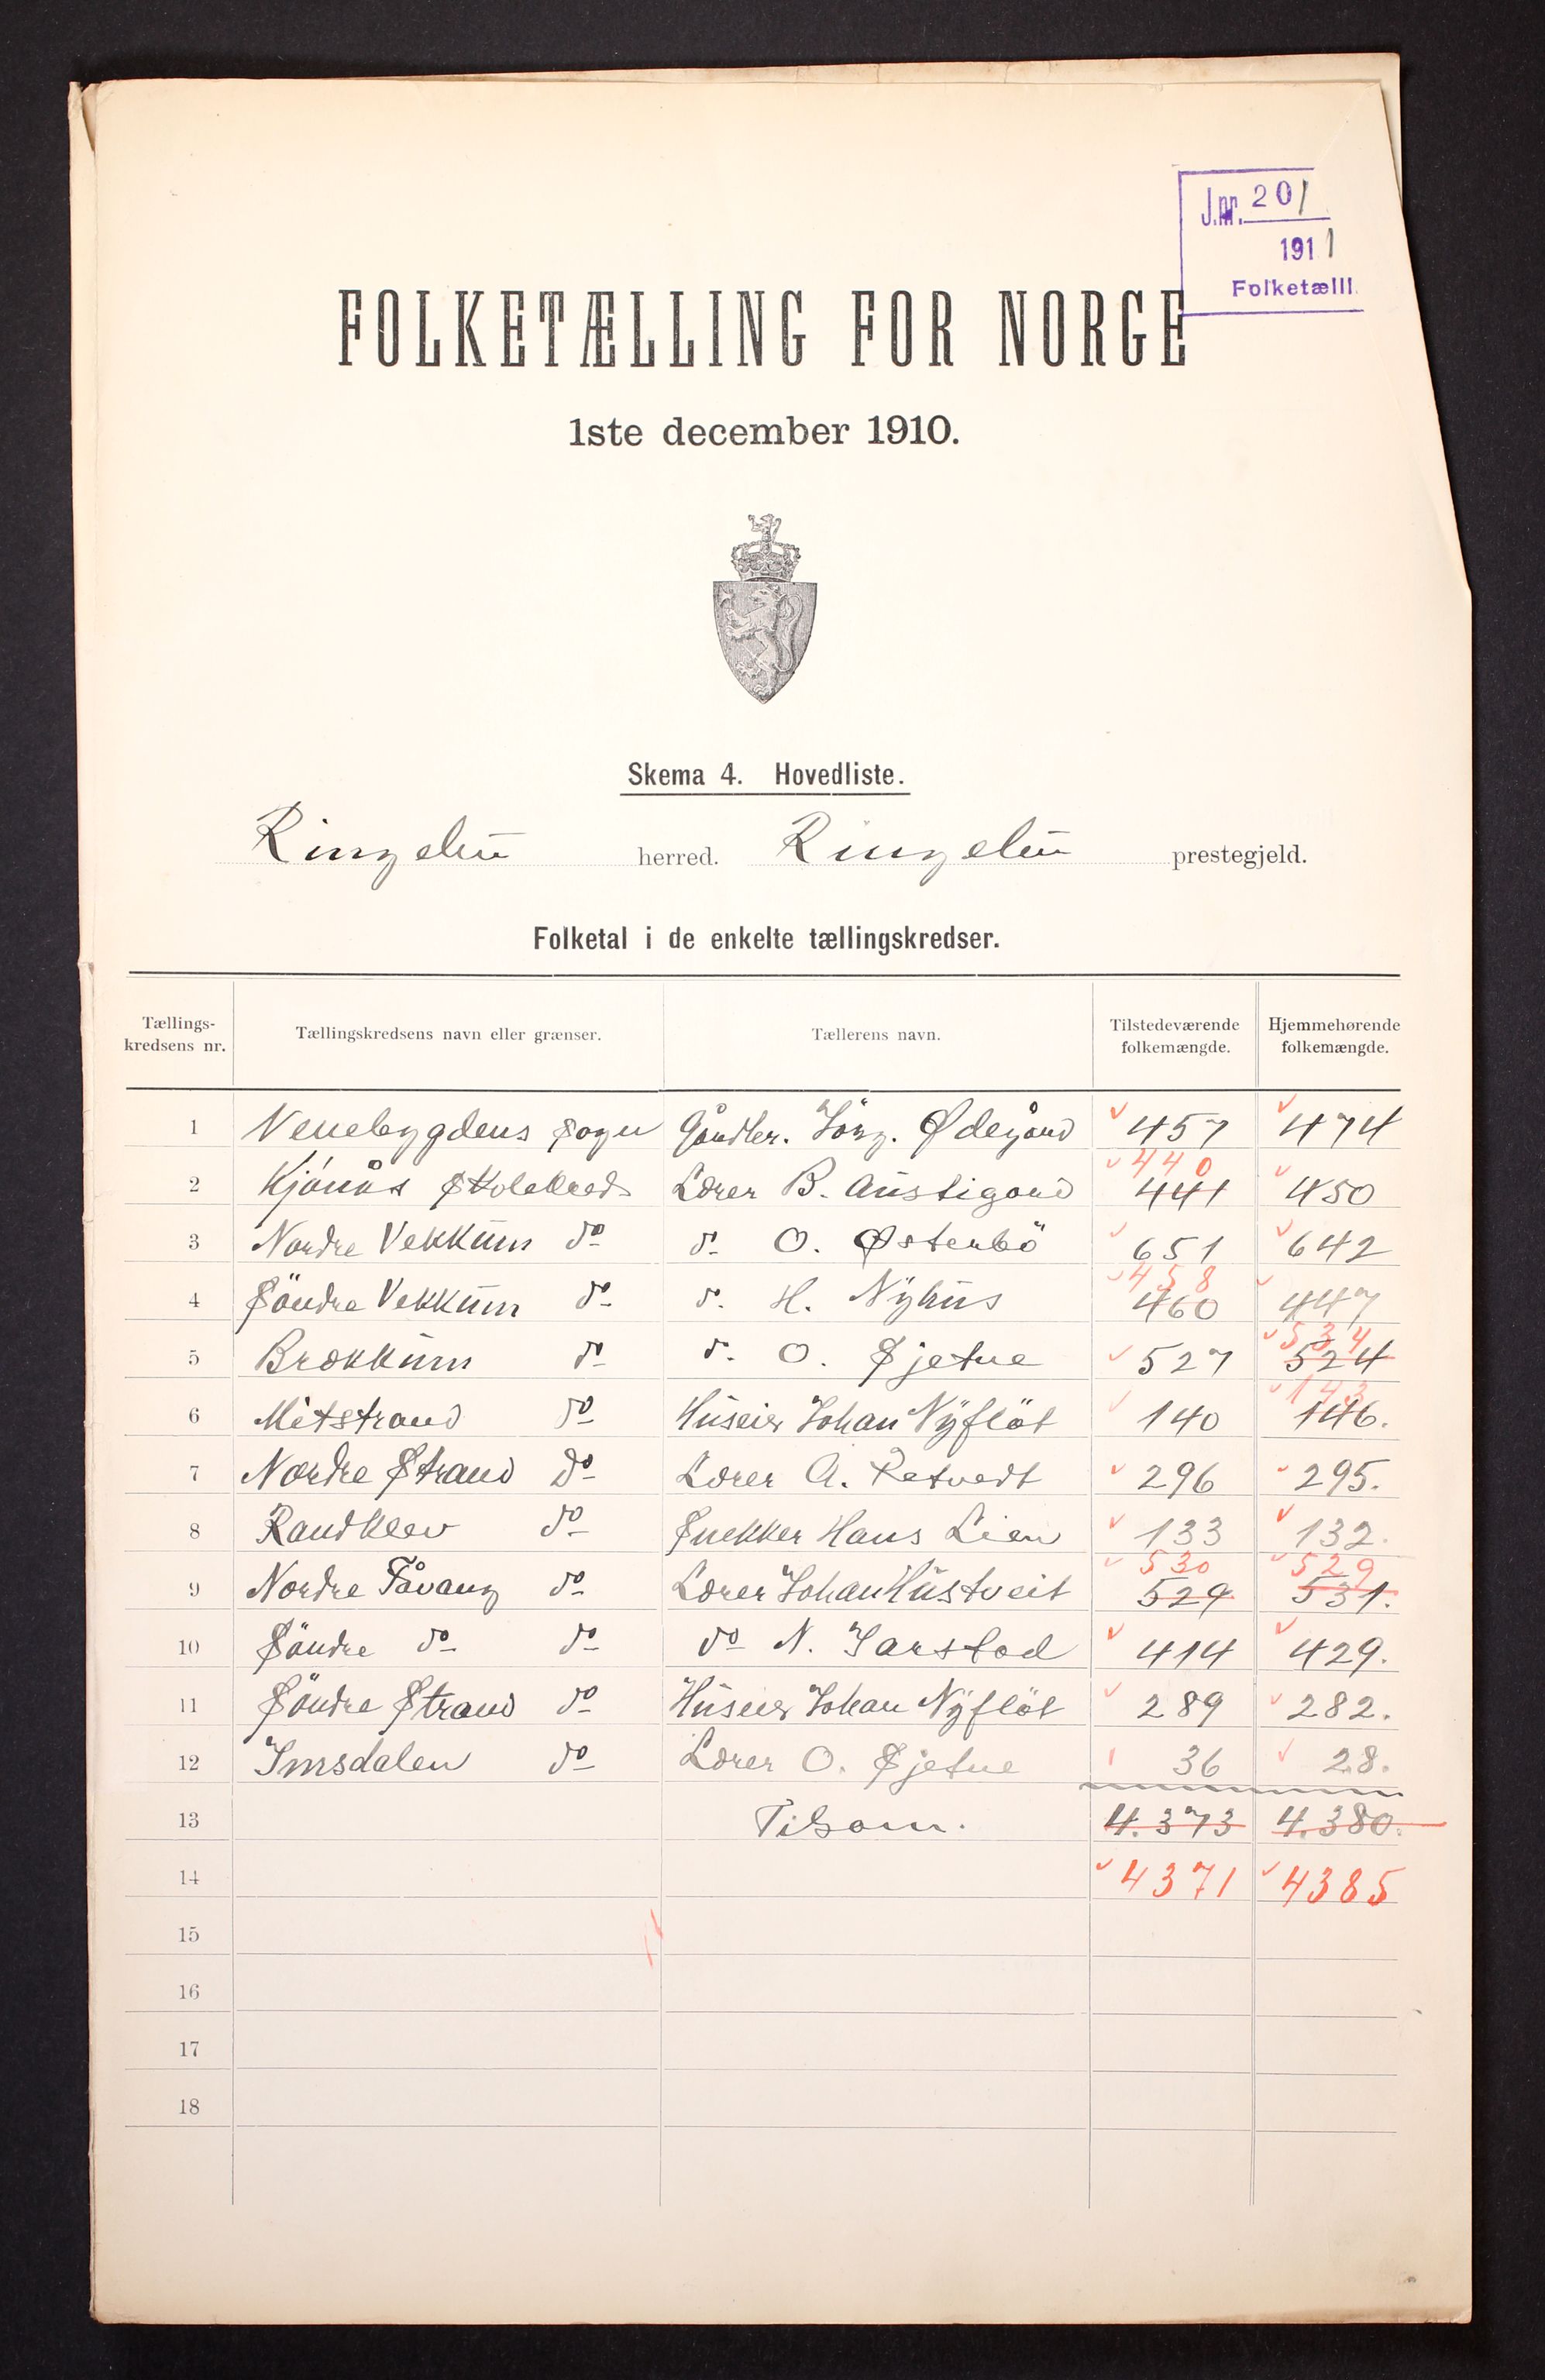 J.nr. 201
1911
Folketælll.
FOLKETÆLLING FOR NORGE
1ste december 1910.
Skema 4. Hovedliste.
Ringebu herred. Ringebu prestegjeld.
Folketal i de enkelte tællingskredser.
Tællings-kredsens nr. Tællingskredsens navn eller grænser. Tællerens navn. Tilstedeværende folkemængde. Hjemmehørende folkemængde.
1 Venebygdens Sogn Gårdbr. Jörg. Ødegård 457 474
440
2 Kjönås Skolekreds Lærer B. Austigard 441 450
3 Nordre Vekkum do d. O. Østenbö 651 642
458
4 Söndre Vekkum do d. H. Nyhus 460 447
534
5 Brækkum do d. O. Gjetne 527 524
143
6 Mitstrand do Huseier Johan Nyflöt 140 146.
7 Nordre Strand do Lærer A. Retvedt 296 295.
8 Randklev do Snekker Hans Lien 133 132.
530 529
9 Nordre Fåvang do Lærer Johan Hustveit 529 531.
10 Söndre do do do N. Jarstad 414 429.
11 Söndre Strand do Huseier Johan Nyflöt 289 282.
12 Imsdalen do Lærer O. Gjetne 36 28.
13 Tilsam. 4.373 4.380.
14 4371 4385
15
16
17
18